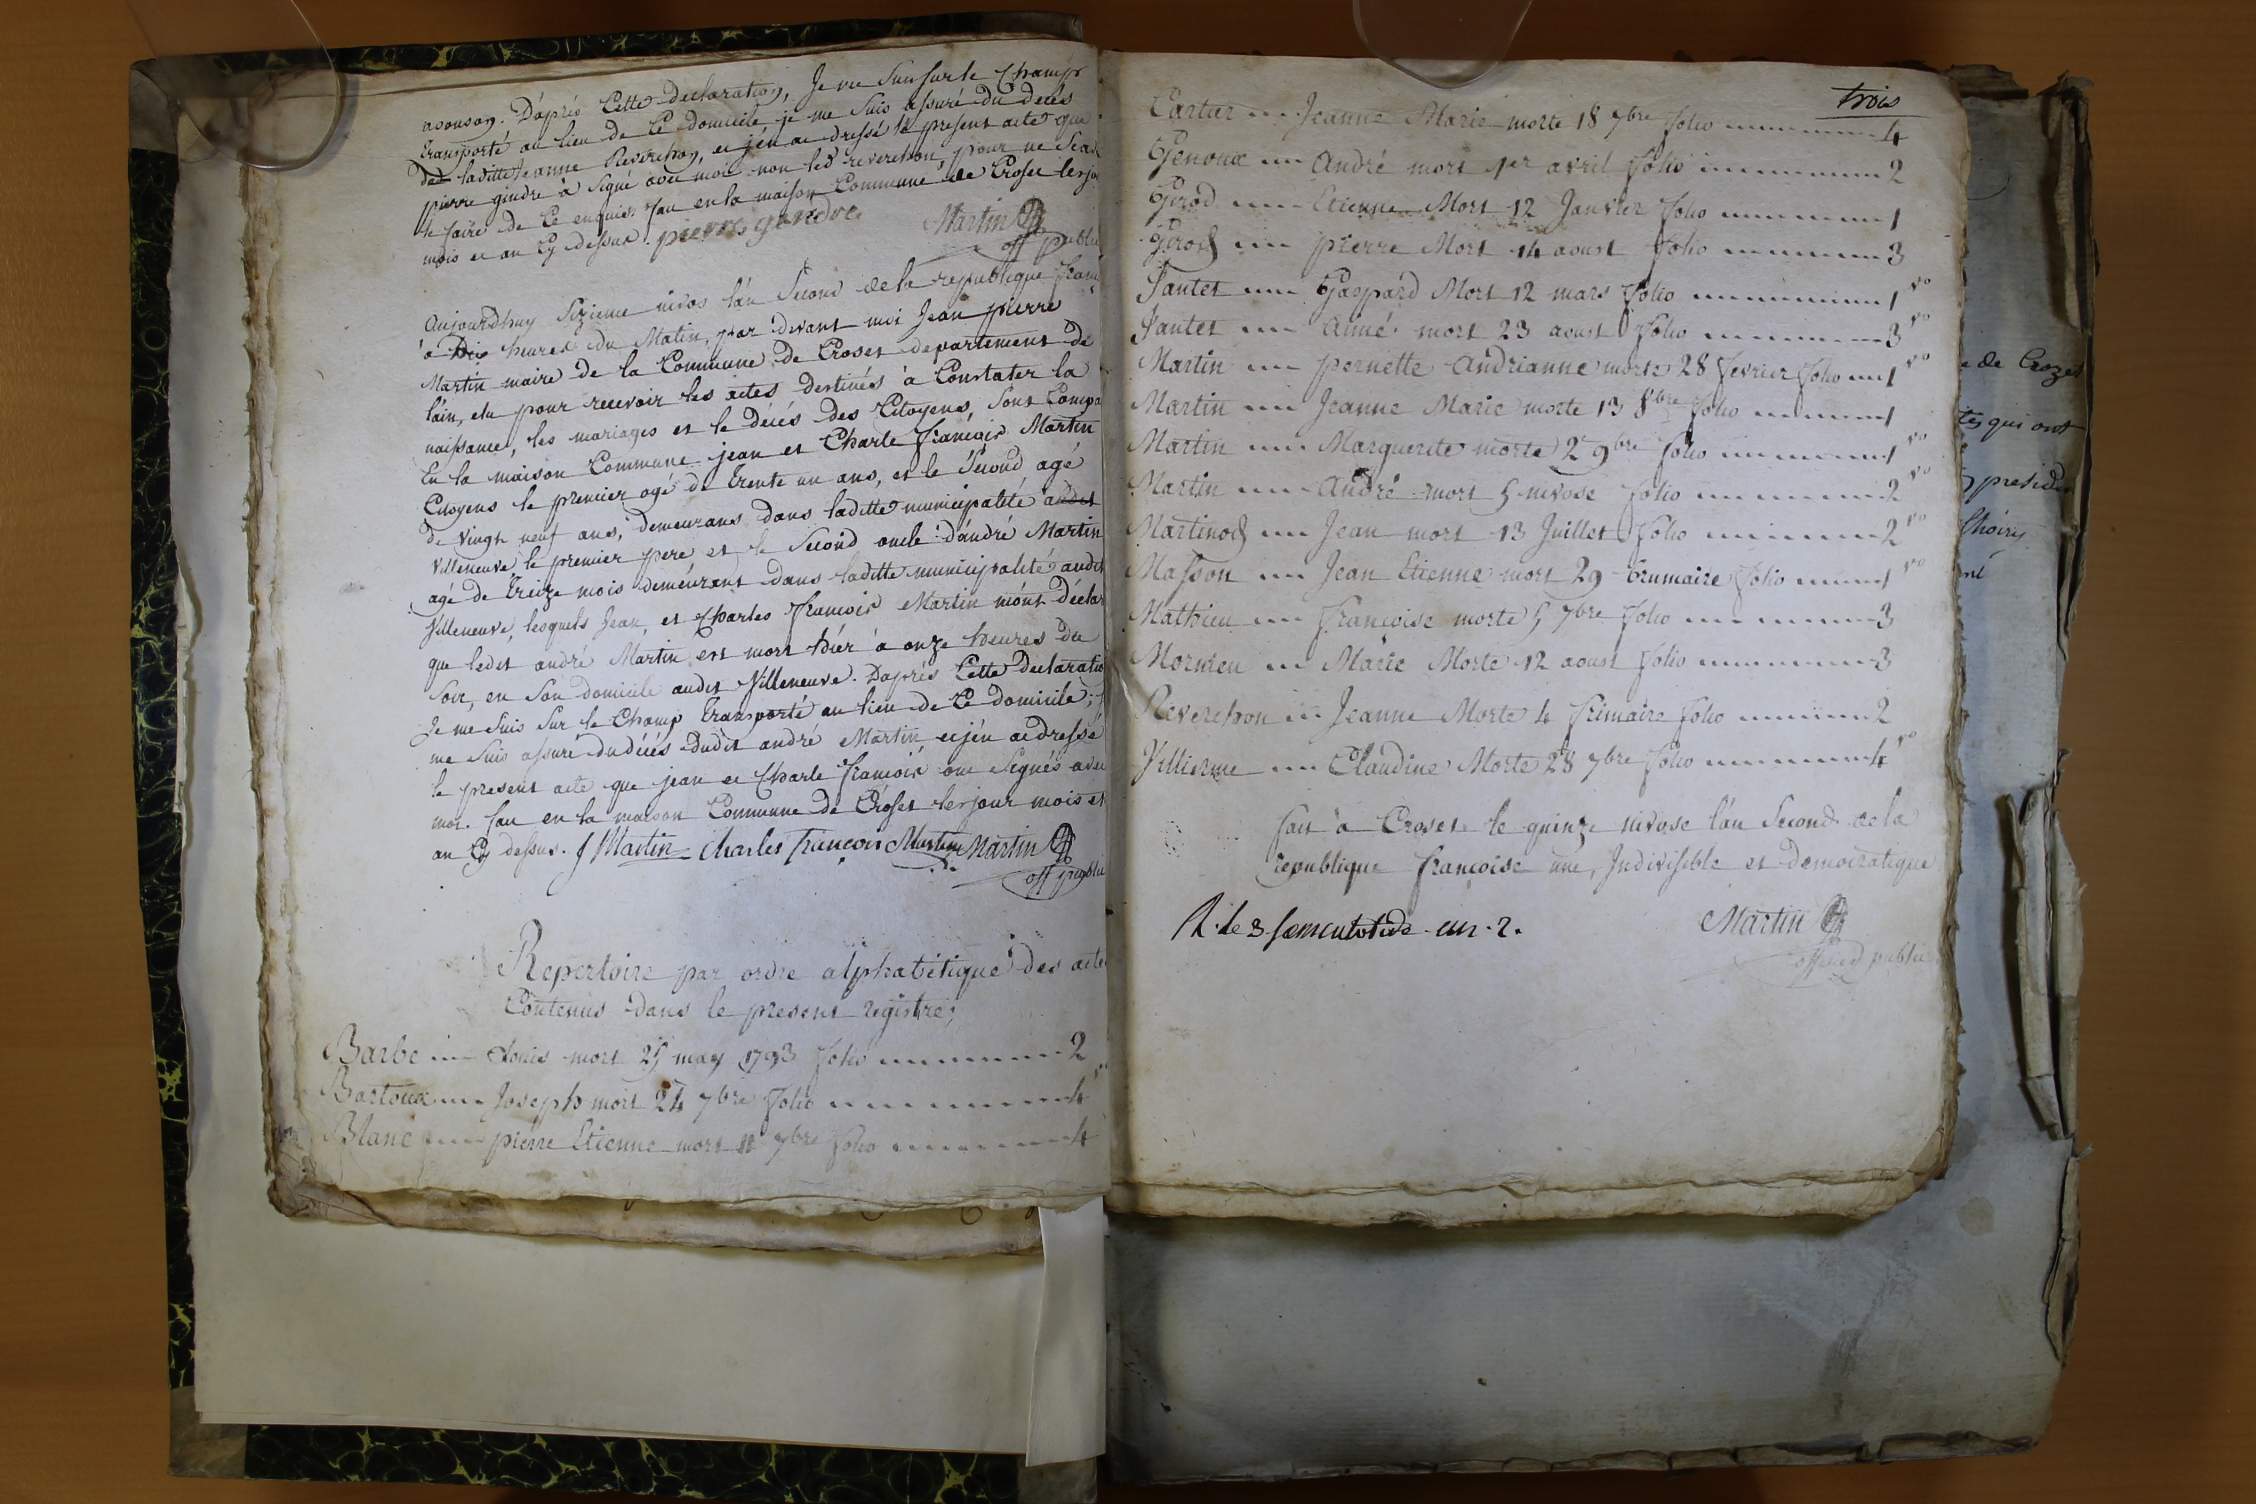 avouson. Dáprés Cette declaration, Je me suis sur le Champ
transporté au lieu de Ce domicile je me suis assuré du decés
de laditte Jeanne Reverchon, et jén ai dressé le present acte que
pierre gindre à signé avec moi non led reverchon, pour ne
le faire de Ce enquis. fau en la maison Commune de Croset les jo
mois et an Cy dessus. pierre gindre Martin
off public
Aujourdhuy Sizieme nivos lán Second de la republique franc
à Dix heures du Matin, par devant moi Jean pierre
Martin maire de la Commune de Croset departement de
láin, elu pour recevoir les actes destinés à Constater la
naissance, les mariages et le décés des Citoyens, Sont Compa
En la maison Commune jean et Charle françois Martin
Citoyens le premier agé de trente un ans, et le Second agé
de vingt neuf ans, demeurans dans laditte municipalité audit
Villeneuve le premier pere et le Second oncle dándré Martin
agé de treize mois demeurant dans laditte municipalité audit
Villeneuve, lesquels Jean, et Charles françois Martin mónt déclar
que ledit andré Martin est mort hiér à onze heures du
Soir, en Son domicile audit Villeneuve. Daprés Cette declaratio
Je me Suis Sur le Champ transporté au lieu de Ce domicile; j
me Suis assuré du décés dudit andré Martin et jén ai dressé
le present acte que jean et Charle françois ont Signés avec
moi. fau en la maison Commune de Croset les jour mois et
an Cy dessus. J Martin Charles françois Martin Martin
off public
Repertoire par ordre alphabétique des acte
Contenus dans le present registre;
Barbe louis mort 25 may 1793 folio 2
Bartoux Joseph mort 24 7bre folio 4 vo
Blanc pierre Etienne mort 11 7bre folio 4
trois
Cartier Jeanne Marie morte 18 7bre folio 4
Genoux André mort 1er avril folio 2
Girod Etienne Mort 12 Janvier folio 1
Girod pierre Mort 14 aoust folio 3
Jantet Gaspard Mort 12 mars folio 1 vo
Jantet Aimé mort 23 aoust folio 3 vo
Martin pernette Andrianne morte 28 fevrier folio 1 vo
Martin Jeanne Marie morte 13 8bre folio 1
Martin Marguerite morte 2 9bre folio 1 vo
Martin André mort 5 nivose folio 2 vo
Martinod Jean mort 13 Juillet folio 2 vo
Masson Jean Etienne mort 29 brumaire folio 1 vo
Mathieu françoise morte 5 7bre folio 3
Mornieu Marie Morte 12 aoust folio 3
Reverchon Jeanne Morte 4 frimaire folio 2
Villierme Claudine Morte 28 7bre folio 4 vo
fait à Croset le quinze nivose lán Second de la
republique françoise une, Indivisible et democratique
R. le 3 an 2. Martin
officier public
e de Crozet
tes qui ont
preside